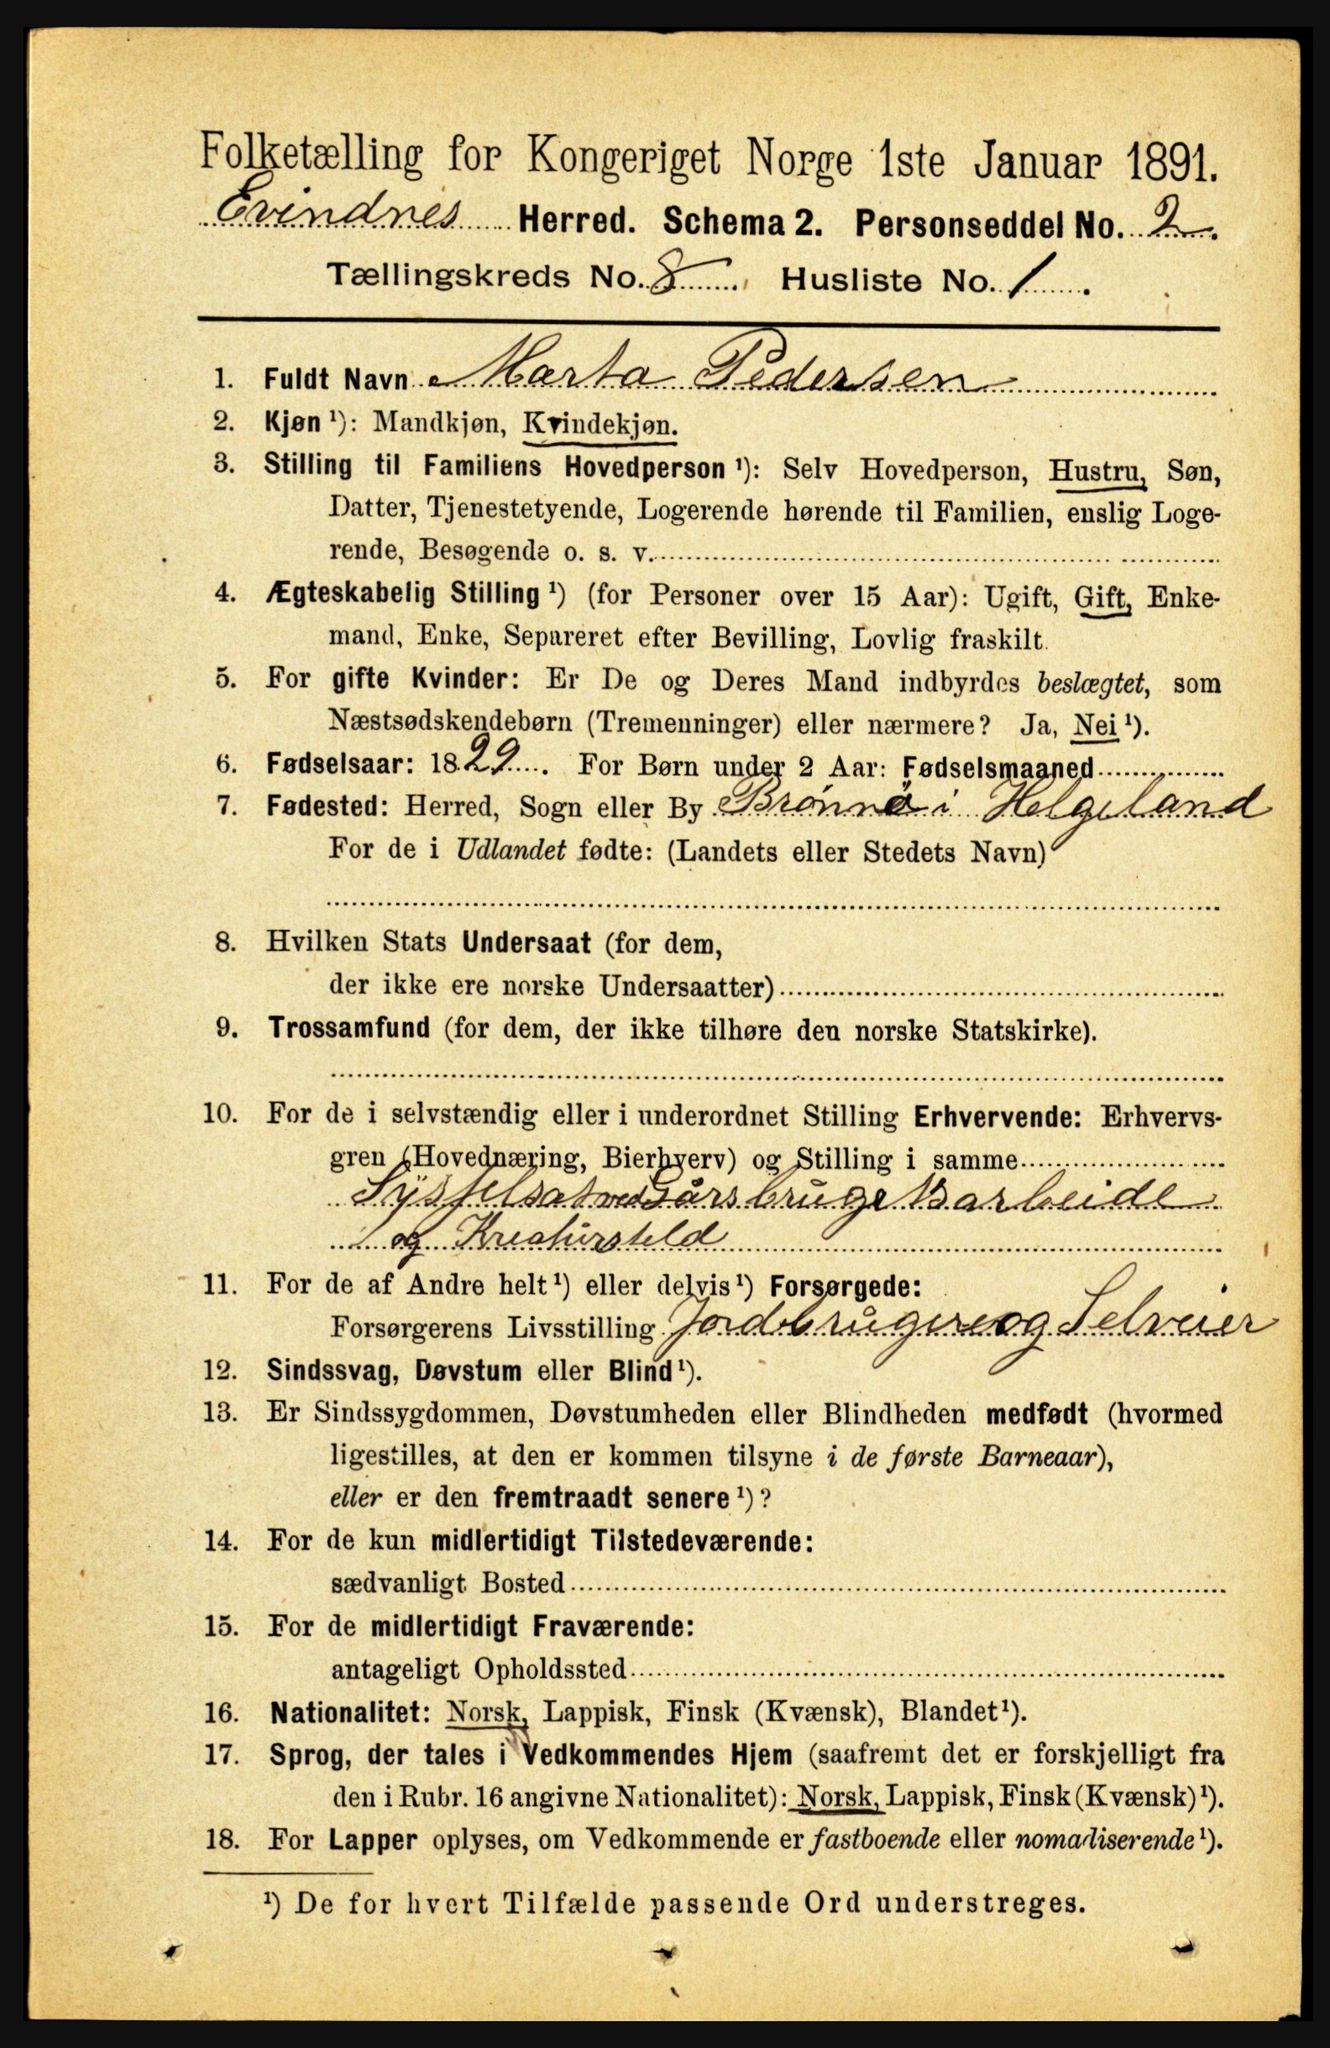 Folketælling for Kongeriget Norge 1ste Januar 1891.
Evindnes Herred. Schema 2. Personseddel No. 2.
Tællingskreds No. 8. Husliste No. 1.
1. Fuldt Navn Marta Pedersen
2. Kjøn ¹): Mandkjøn, Kvindekjøn.
3. Stilling til Familiens Hovedperson ¹): Selv Hovedperson, Hustru, Søn,
Datter, Tjenestetyende, Logerende hørende til Familien, enslig Loge-
rende, Besøgende o. s. v.
4. Ægteskabelig Stilling ¹) (for Personer over 15 Aar): Ugift, Gift, Enke-
mand, Enke, Separeret efter Bevilling, Lovlig fraskilt.
5. For gifte Kvinder: Er De og Deres Mand indbyrdes beslægtet, som
Næstsødskendebørn (Tremenninger) eller nærmere? Ja, Nei ¹).
6. Fødselsaar: 1829. For Børn under 2 Aar: Fødselsmaaned
7. Fødested: Herred, Sogn eller By Brønnø i Helgeland
For de i Udlandet fødte: (Landets eller Stedets Navn)
8. Hvilken Stats Undersaat (for dem,
der ikke ere norske Undersaatter)
9. Trossamfund (for dem, der ikke tilhøre den norske Statskirke).
10. For de i selvstændig eller i underordnet Stilling Erhvervende: Erhvervs-
gren (Hovednæring, Bierhverv) og Stilling i samme
Sysselsat ved Gårsbrugetsarbeide
og Kreatursteld
11. For de af Andre helt ¹) eller delvis ¹) Forsørgede:
Forsørgerens Livsstilling Jordbrugere og Selveier
12. Sindssvag, Døvstum eller Blind ¹).
13. Er Sindssygdommen, Døvstumheden eller Blindheden medfødt (hvormed
ligestilles, at den er kommen tilsyne i de første Barneaar),
eller er den fremtraadt senere ¹)?
14. For de kun midlertidigt Tilstedeværende:
sædvanligt Bosted
15. For de midlertidigt Fraværende:
antageligt Opholdssted
16. Nationalitet: Norsk, Lappisk, Finsk (Kvænsk), Blandet ¹).
17. Sprog, der tales i Vedkommendes Hjem (saafremt det er forskjelligt fra
den i Rubr. 16 angivne Nationalitet): Norsk, Lappisk, Finsk (Kvænsk) ¹).
18. For Lapper oplyses, om Vedkommende er fastboende eller nomadiserende ¹).
¹) De for hvert Tilfælde passende Ord understreges.